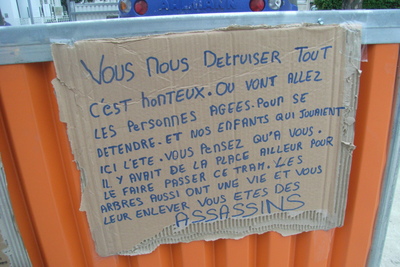 Vous Nous Detruiser Tout
c'est honteux. Ou vont allez
les personnes agees. Pour se
detendre. Et nos enfants qui jouaient
ici l'ete. Vous pensez qu'a vous.
Il y avait de la place ailleur pour
le faire passer ce tram. Les
arbres aussi ont une vie et vous
leur enlever vous etes des
ASSASSINS